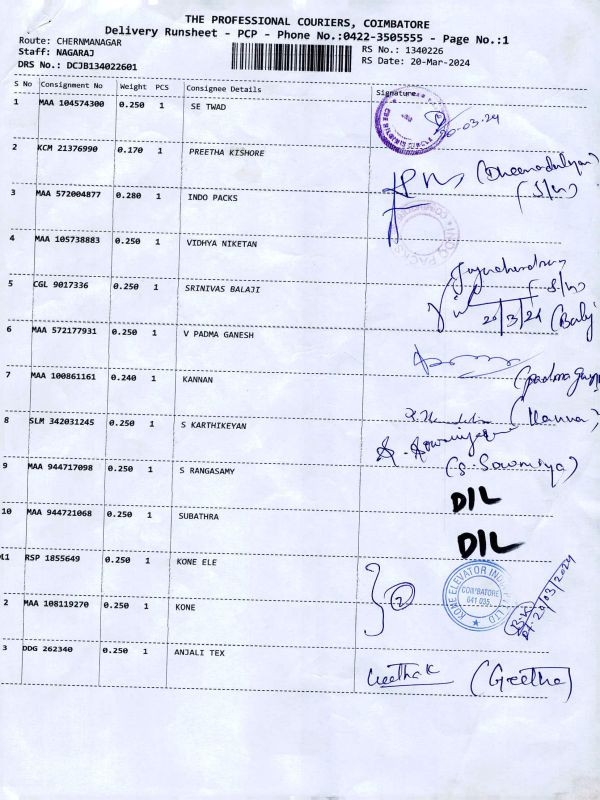 THE PROFESSIONAL COURIERS, COIMBATORE
Delivery Runsheet - PCP - Phone No.:0422-3505555 - Page No.:1
Route: CHERNMANAGAR
Staff: NAGARAJ
RS No.: 1340226
DRS No.: DCJB134022601
RS Date: 20-Mar-2024
S No Consignment No Weight PCS Consignee Details Signature
1 MAA 104574300 0.250 1 SE TWAD
20-03-24
2 KCM 21376990 0.170 1 PREETHA KISHORE
(S/w)
3 MAA 572004877 0.280 1 INDO PACKS
INDO PACKS
4 MAA 105738883 0.250 1 VIDHYA NIKETAN
5 CGL 9017336 0.250 1 SRINIVAS BALAJI
(S/w)
20/3/24 (Balaj
6 MAA 572177931 0.250 1 V PADMA GANESH
7 MAA 100861161 0.240 1 KANNAN
8 SLM 342031245 0.250 1 S KARTHIKEYAN
(S. Sowmiya)
9 MAA 944717098 0.250 1 S RANGASAMY
DIL
10 MAA 944721068 0.250 1 SUBATHRA
DIL
11 RSP 1855649 0.250 1 KONE ELE
2
KONE ELEVATOR INDIA LTD
COIMBATORE
641 035
20/03/2024
2 MAA 108119270 0.250 1 KONE
3 DDG 262340 0.250 1 ANJALI TEX
Geetha K (Geetha)